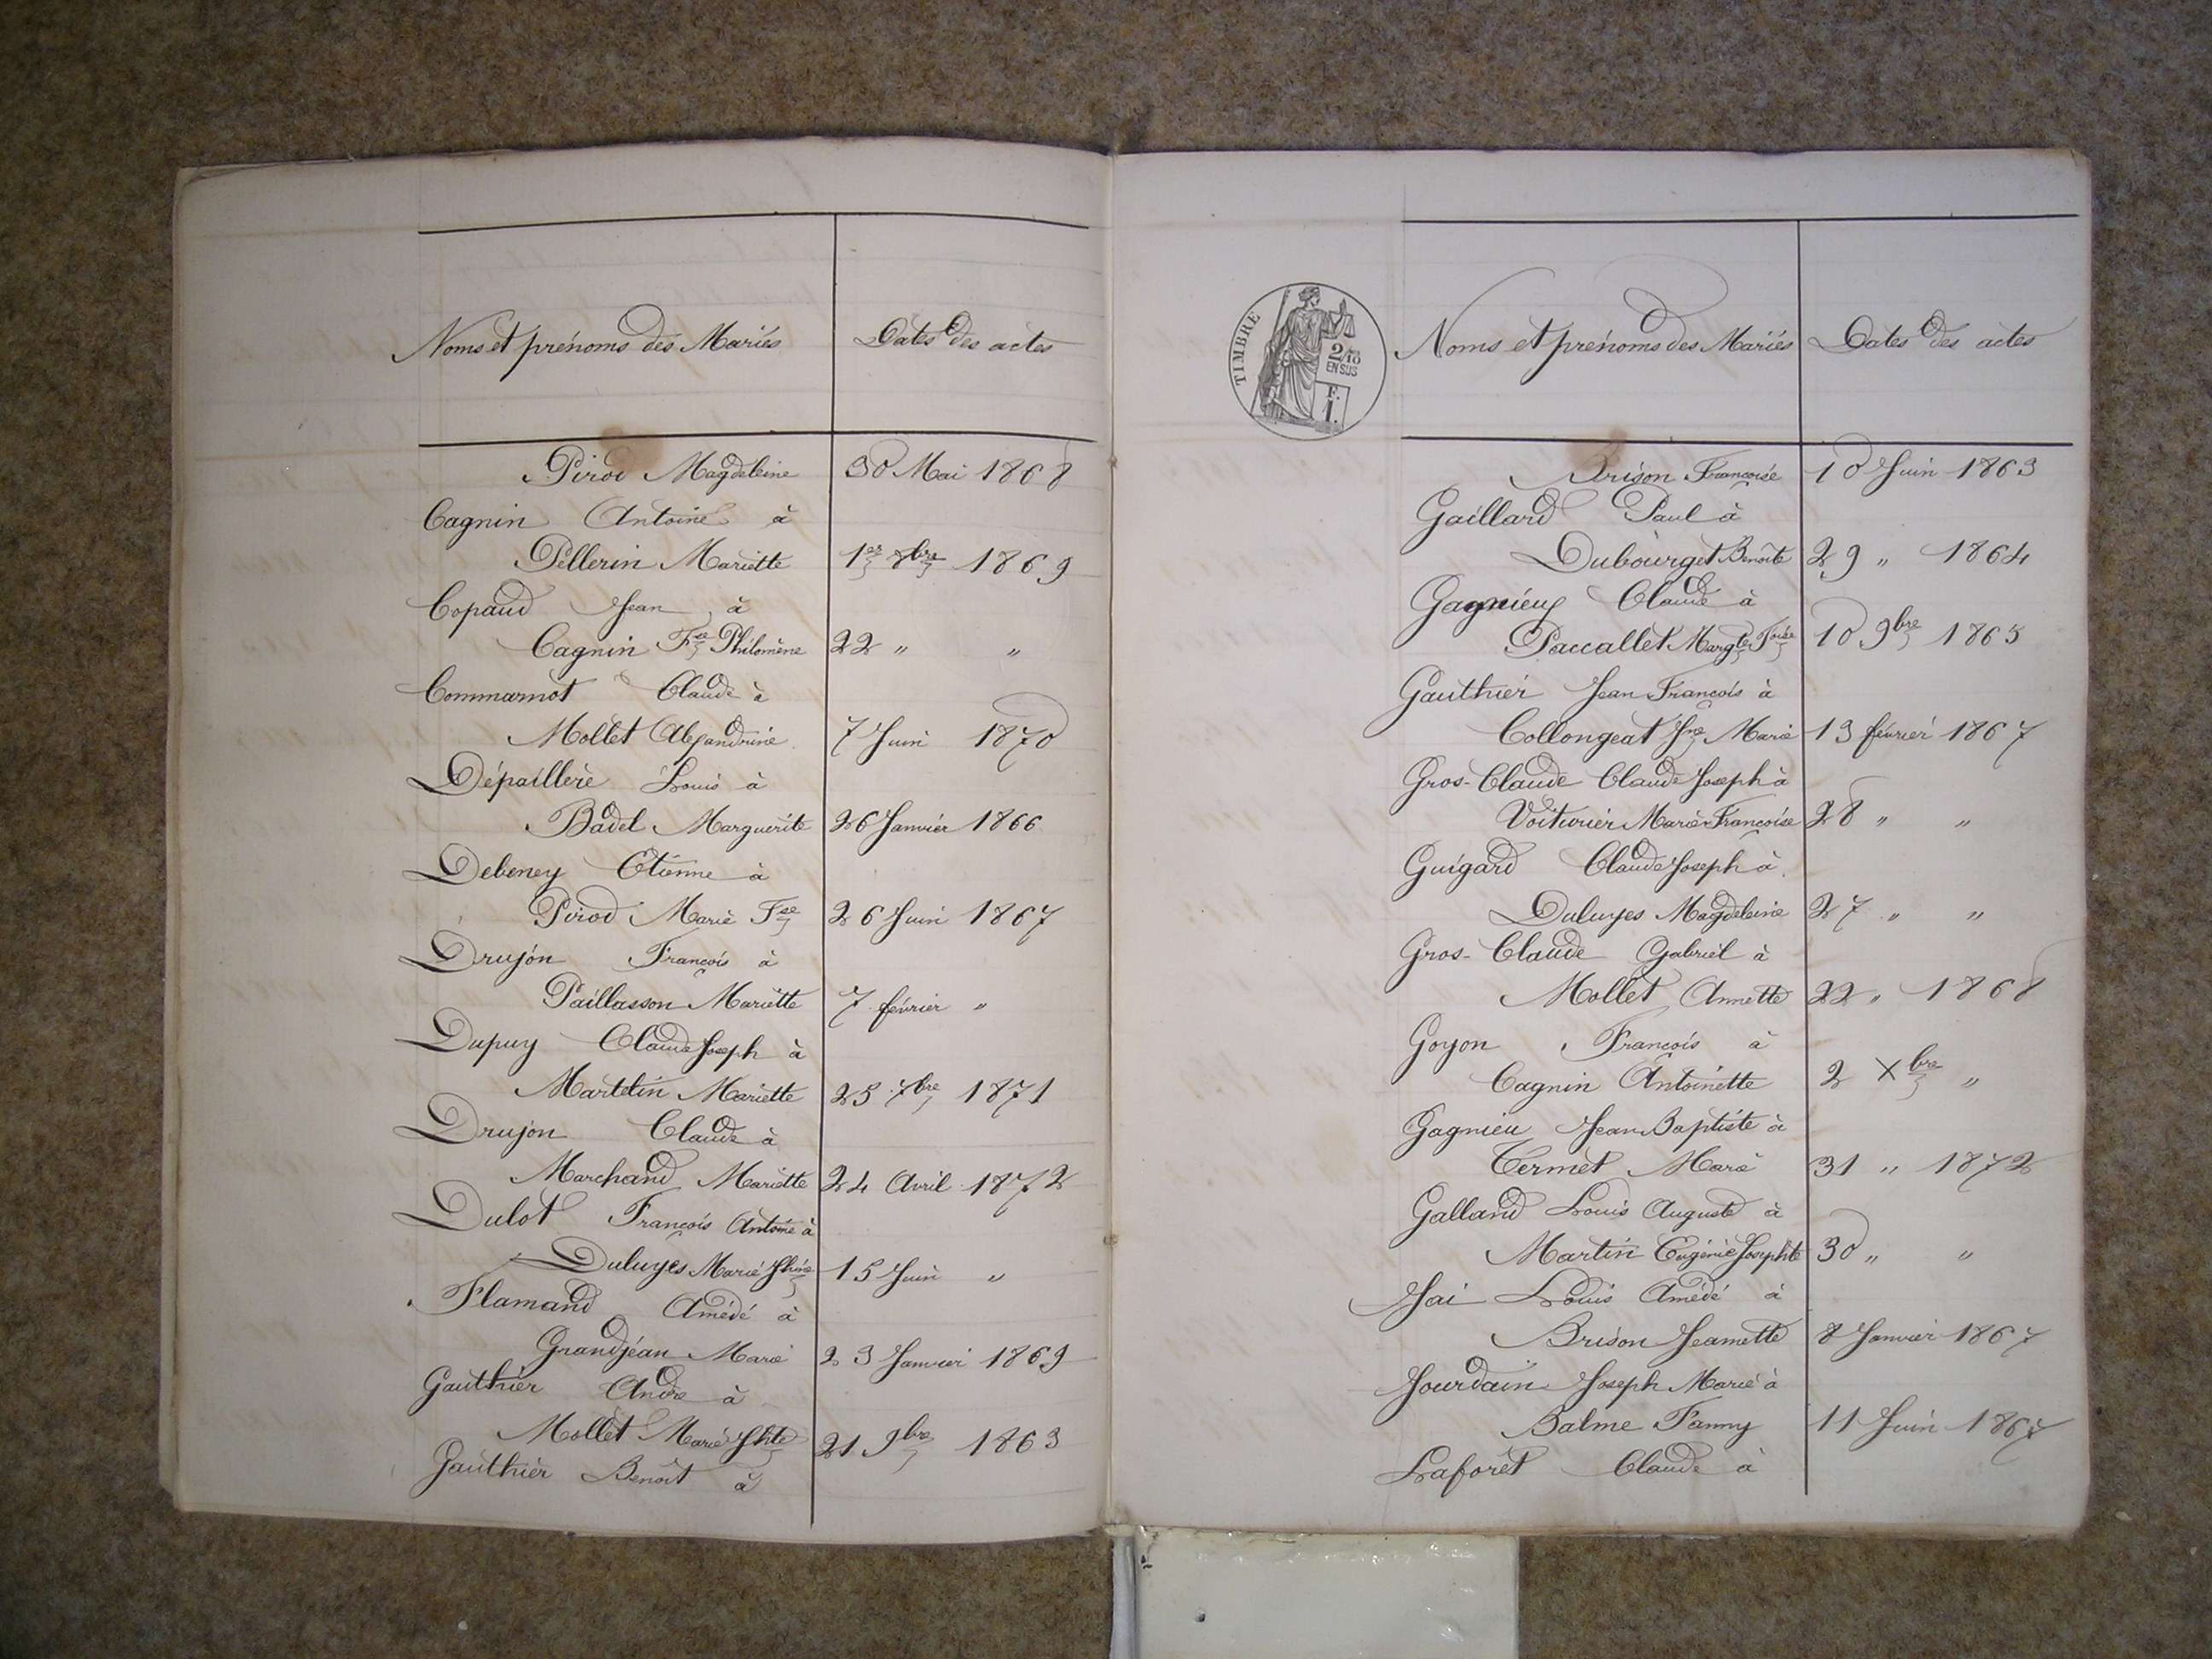 Noms et prénoms des Mariés
Dates des actes
Pirod Magdeleine 30 Mai 1868
Cagnin Antoine à
Pellerin Mariette 1er 8bre 1869
Copaud Jean à
Cagnin Fse Philomène 22 " "
Commarmot Claude à
Mollet Alexandrine 7 Juin 1870
Dépaillère Louis à
Badel Marguerite 26 Janvier 1866
Debeney Etienne à
Pirod Marie Fse 26 Juin 1867
Drujon François à
Paillasson Mariette 7 février "
Dupuy Claude Joseph à
Martelin Mariette 25 7bre 1871
Drujon Claude à
Marchand Mariette 24 Avril 1872
Dulot François Antoine à
Duluyes Marie Jhine 15 Juin "
Flamand Amédé à
Grandjean Marie 23 Janvier 1869
Gauthier André à
Mollet Marie Jhte 21 9bre 1863
Gauthier Benoît à
TIMBRE
2/10
EN SUS
F.
1.
Noms et prénoms des Mariés
Dates des actes
Brison Françoise 10 Juin 1863
Gaillard Paul à
Dubourget Benoîte 29 " 1864
Gagnieux Claude à
Paccallet Margte Foise 10 9bre 1865
Gauthier Jean François à
Collongeat Jne Marie 13 février 1867
Gros-Claude Claude Joseph à
Voiturier Marie Françoise 28 " "
Guigard Claude Joseph à
Duluyes Magdeleine 27 " "
Gros-Claude Gabriel à
Mollet Annette 22 " 1868
Goyon François à
Cagnin Antoinette 2 Xbre "
Gagnieu Jean Baptiste à
Termet Marie 31 " 1872
Galland Louis Auguste à
Martin Eugénie Josephte 30 " "
Jai Louis Amédé à
Brison Jeannette 8 Janvier 1867
Jourdain Joseph Marie à
Balme Fanny 11 Juin 1867
Laforêt Claude à